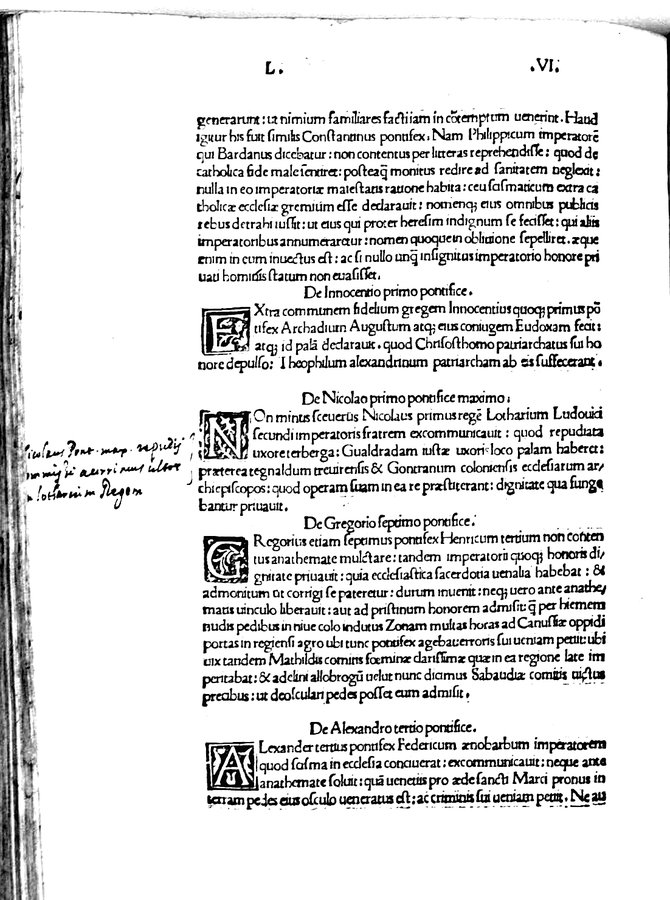 L. .VI.
generarunt: ut nimium familiares facti iam in cõtemptum uenerint. Haud
igitur his fuit similis Constantinus pontifex. Nam Philippicum imperatorẽ
qui Bardanus dicebatur: non contentus per litteras reprehendisse: quod de
catholica fide male sentiret: posteaq̃ monitus redire ad sanitatem neglexit:
nulla in eo imperatoriæ maiestatis ratione habita: ceu scismaticum extra ca
tholicæ ecclesiæ gremium esse declarauit: nomenq; eius omnibus publicis
rebus detrahi iussit: ut eius qui propter heresim indignum se fecisset: qui aliis
imperatoribus annumeraretur: nomen quoque in obliuione sepelliret. æque
enim in eum inuectus est: ac si nullo unq̃ insignitus imperatorio honore pri
uati hominis statum non euasisset.
De Innocentio primo pontifice.
EXtra communem fidelium gregem Innocentius quoq; primus põ
tifex Archadium Augustum atq; eius coniugem Eudoxam fecit:
atq; id palã declarauit. quod Chrisosthomo patriarchatus sui ho
nore depulso: Theophilum alexandrinum patriarcham ab eis suffecerant.
De Nicolao primo pontifice maximo.
NOn minus sceuerus Nicolaus primus regẽ Lotharium Ludouici
secundi imperatoris fratrem excommunicauit: quod repudiata
uxore terberga: Gualdradam iustæ uxoris loco palam haberet:
præterea tegnaldum treuirensis & Gontranum coloniensis ecclesiarum ar/
chiepiscopos: quod operam suam in ea re præstiterant: dignitate qua funge
bantur priuauit.
Nicolaus Pont. max. repudij
Lotharium Regem
De Gregorio septimo pontifice.
GRegorius etiam septimus pontifex Henricum tertium non conten
tus anathemate mulctare: tandem imperatorii quoq; honoris di/
gnitate priuauit: quia ecclesiastica sacerdotia uenalia habebat: &
admonitum ut corrigi se pateretur: durum inuenit: neq; uero ante anathe/
matis uinculo liberauit: aut ad pristinum honorem admisit: q̃ per hiemem
nudis pedibus in niue colo indutus Zonam multas horas ad Canussiæ oppidi
portas in regiensi agro ubi tunc pontifex agebat erroris sui ueniam petiit: ubi
uix tandem Mathildis comitis fœminæ clarissimæ quæ in ea regione late im
peritabat: & adelini allobrogũ uelut nunc dicimus Sabaudiæ comitis uictus
precibus: ut deosculari pedes posset eum admisit.
De Alexandro tertio pontifice.
ALexander tertius pontifex Federicum ænobarbum imperatorem
quod scisma in ecclesia conciuerat: excommunicauit: neque ante
anathemate soluit: quã uenetiis pro æde sancti Marci pronus in
terram pedes eius osculo ueneratus est: ac criminis sui ueniam petiit. Ne au